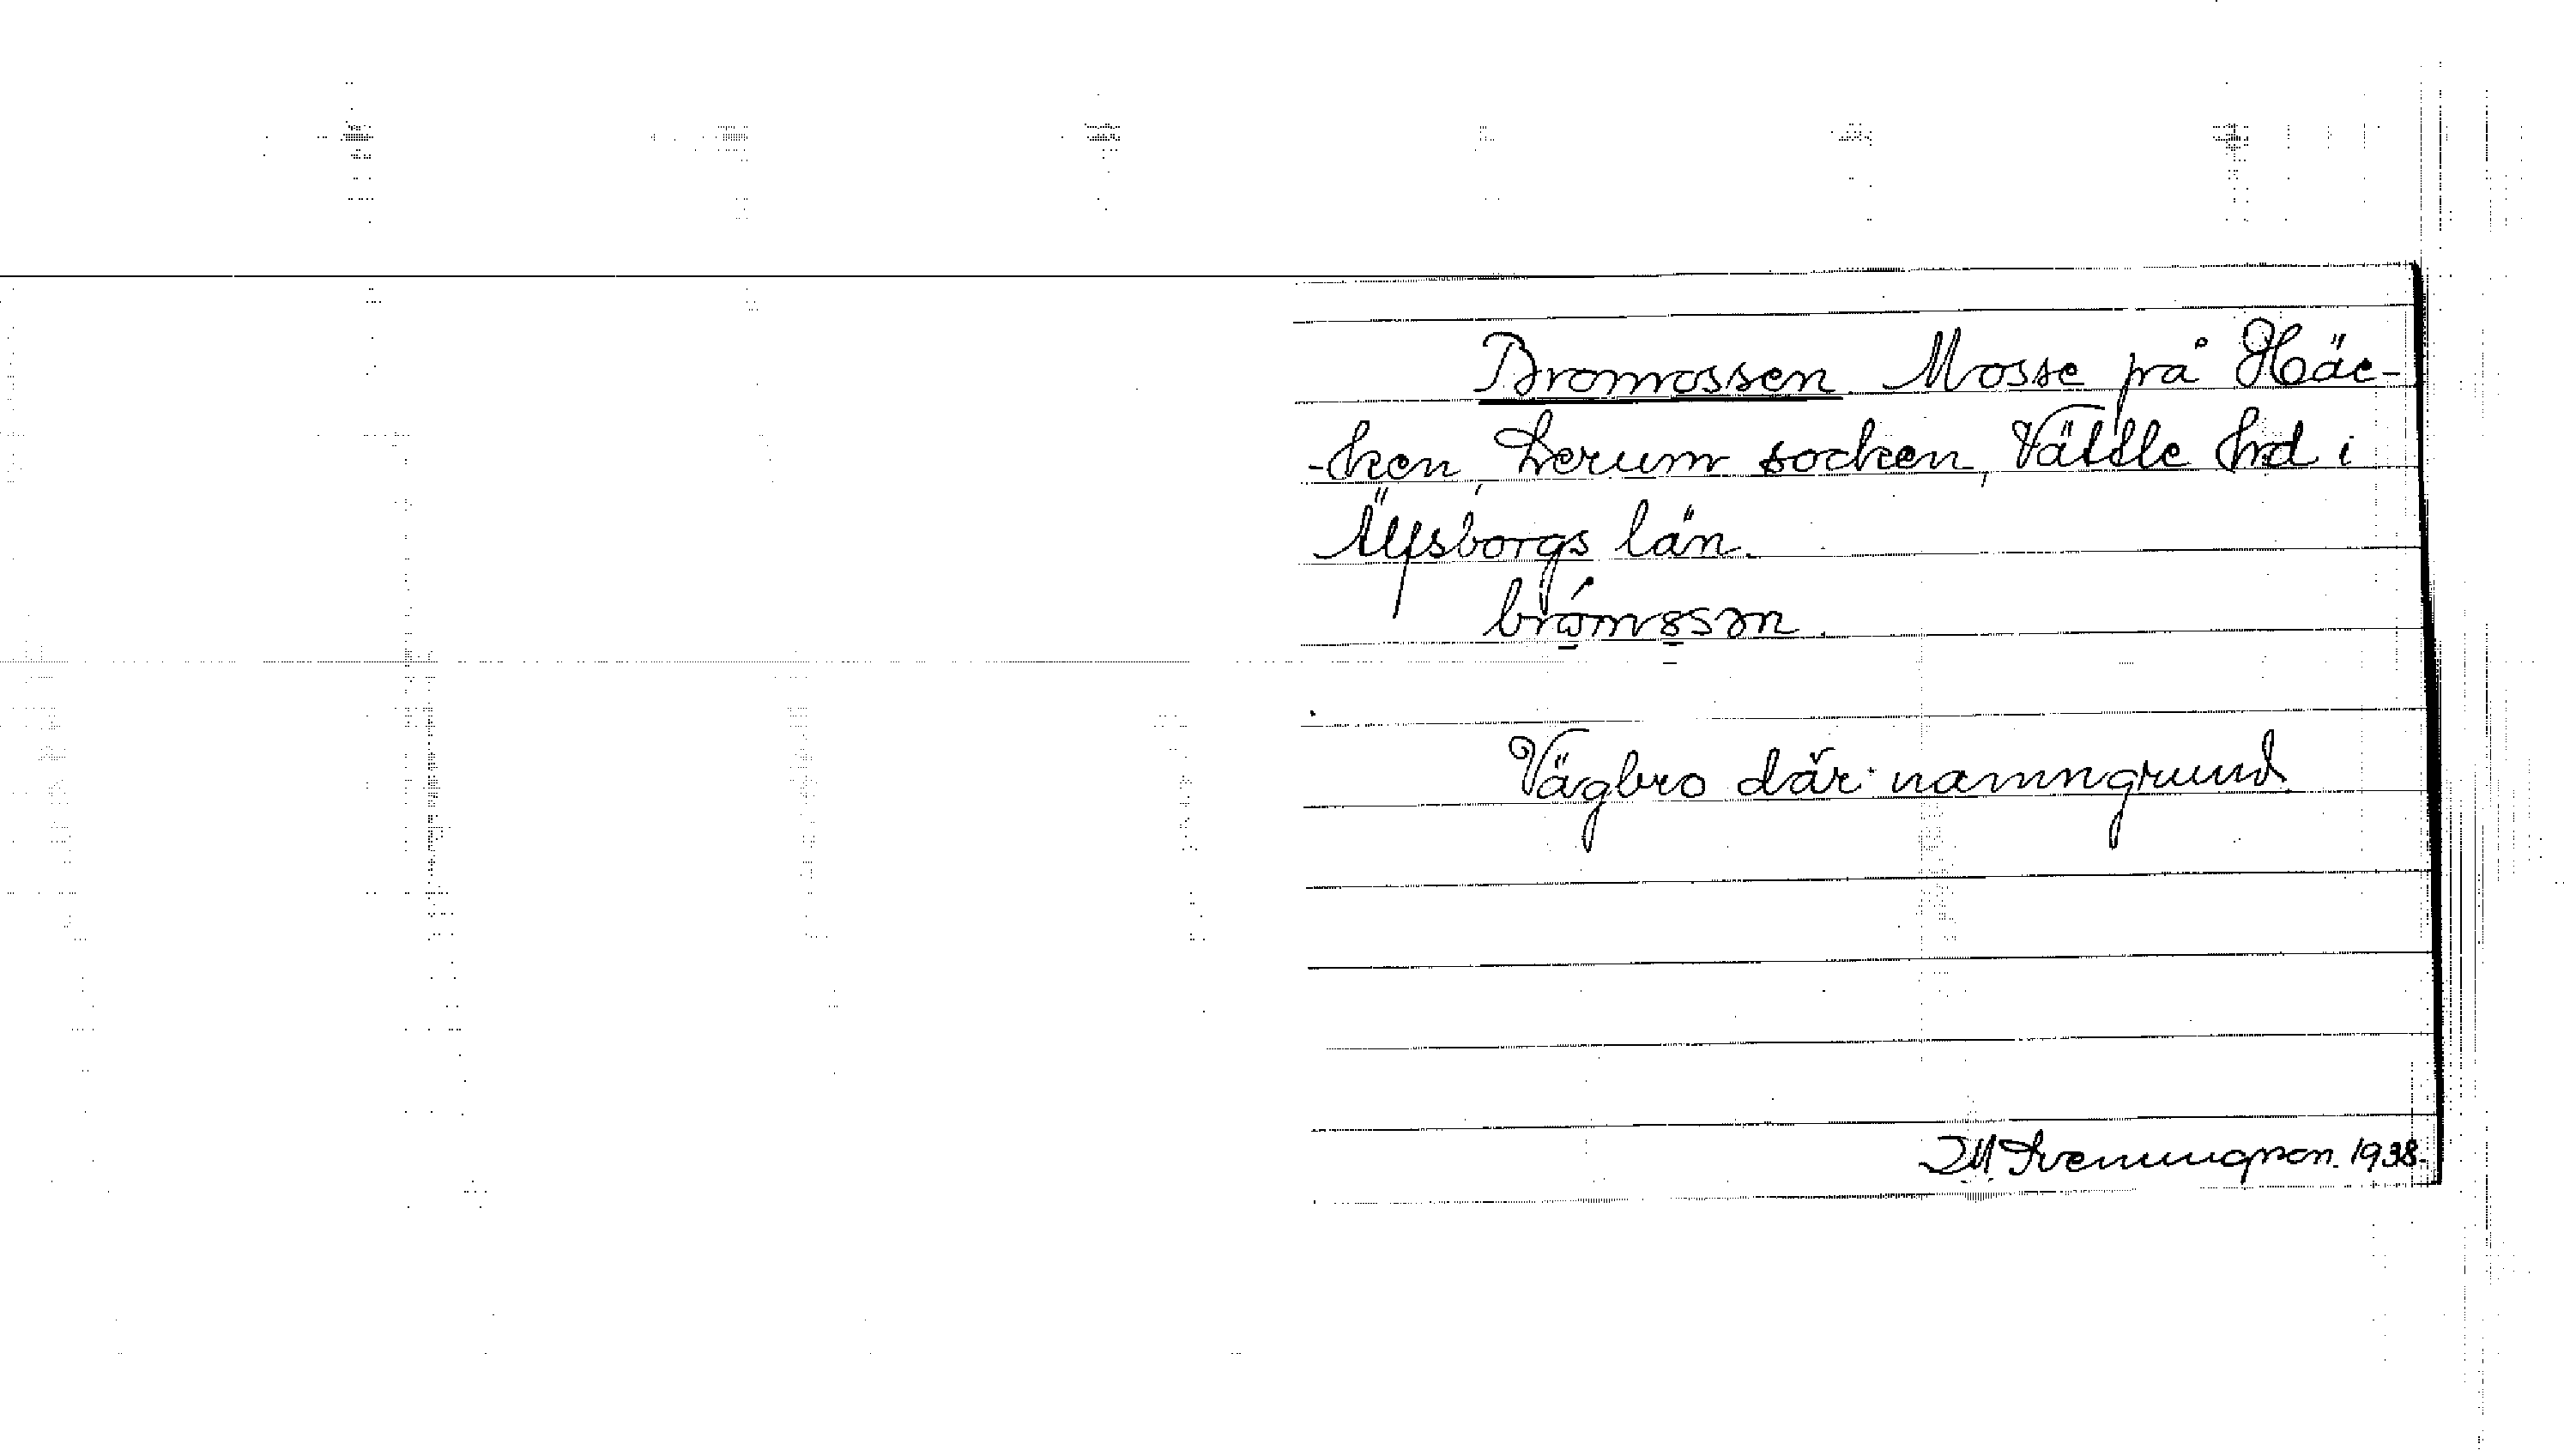 Bromossen Mosse på Häc-
-ken, Lerum socken, Vättle hrd i
Älfsborgs län.
brómɞsən.
Vägbro där namngrund.
JM Svenningson. 1938.